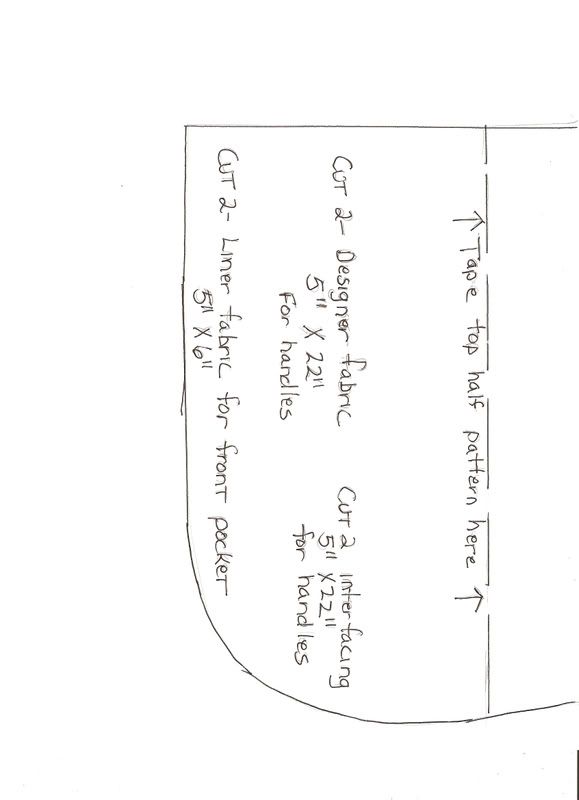 ↑ Tape top half pattern here ↑
Cut 2- Designer fabric
5" X 22"
For handles
Cut 2 interfacing
5" X 22"
for handles
Cut 2- Liner fabric for front pocket
5" X 6"